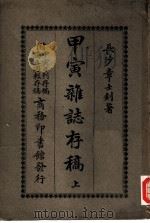 長沙章士釗著
甲寅雜誌存稿 上
商務印書館發行